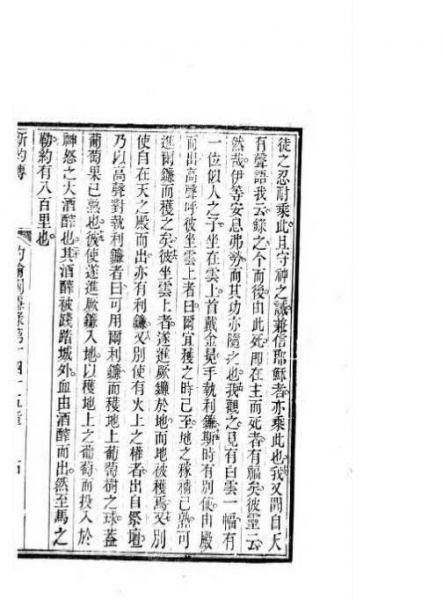 徒之忍耐乘此且守神之誡兼信耶穌者亦乘此也我又聞自天
有聲語我云錄之今而後由此死即在主而死者有福矣彼靈云
然哉伊等安息弗勞而其功亦隨之也我觀之見有白雲一幅有
一位似人之子坐在雲上首戴金冕手執利鐮斯時有別使由殿
而出高聲呼彼坐雲上者曰爾宜獲之時己至地之稼穡已熟可
進爾鐮而穫之矣彼坐雲上者遂進厥鐮於地而地被穫焉又別
使自在天之殿而出亦有利鐮又別使有火上之權者出自祭壇
乃以高聲對執利鐮者曰可用爾利鐮而穫地上葡萄樹之球蓋
葡萄果已熟也彼使遂進厥鐮入地以穫地上之葡萄而投入於
神怒之大酒醡也其酒醡被踐踏城外血由酒醡而出然至馬之
勒約有八百里也
新約傳 約翰 錄第十四十五章